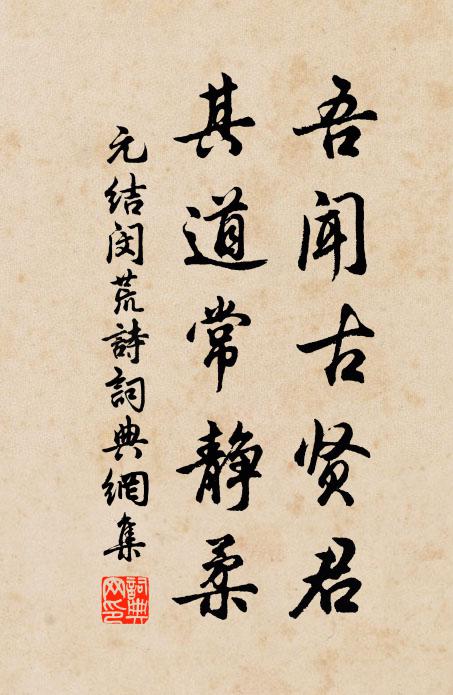 吾闻古贤君
其道常静柔
元结闵荒詩詞典網集
詞典
网印